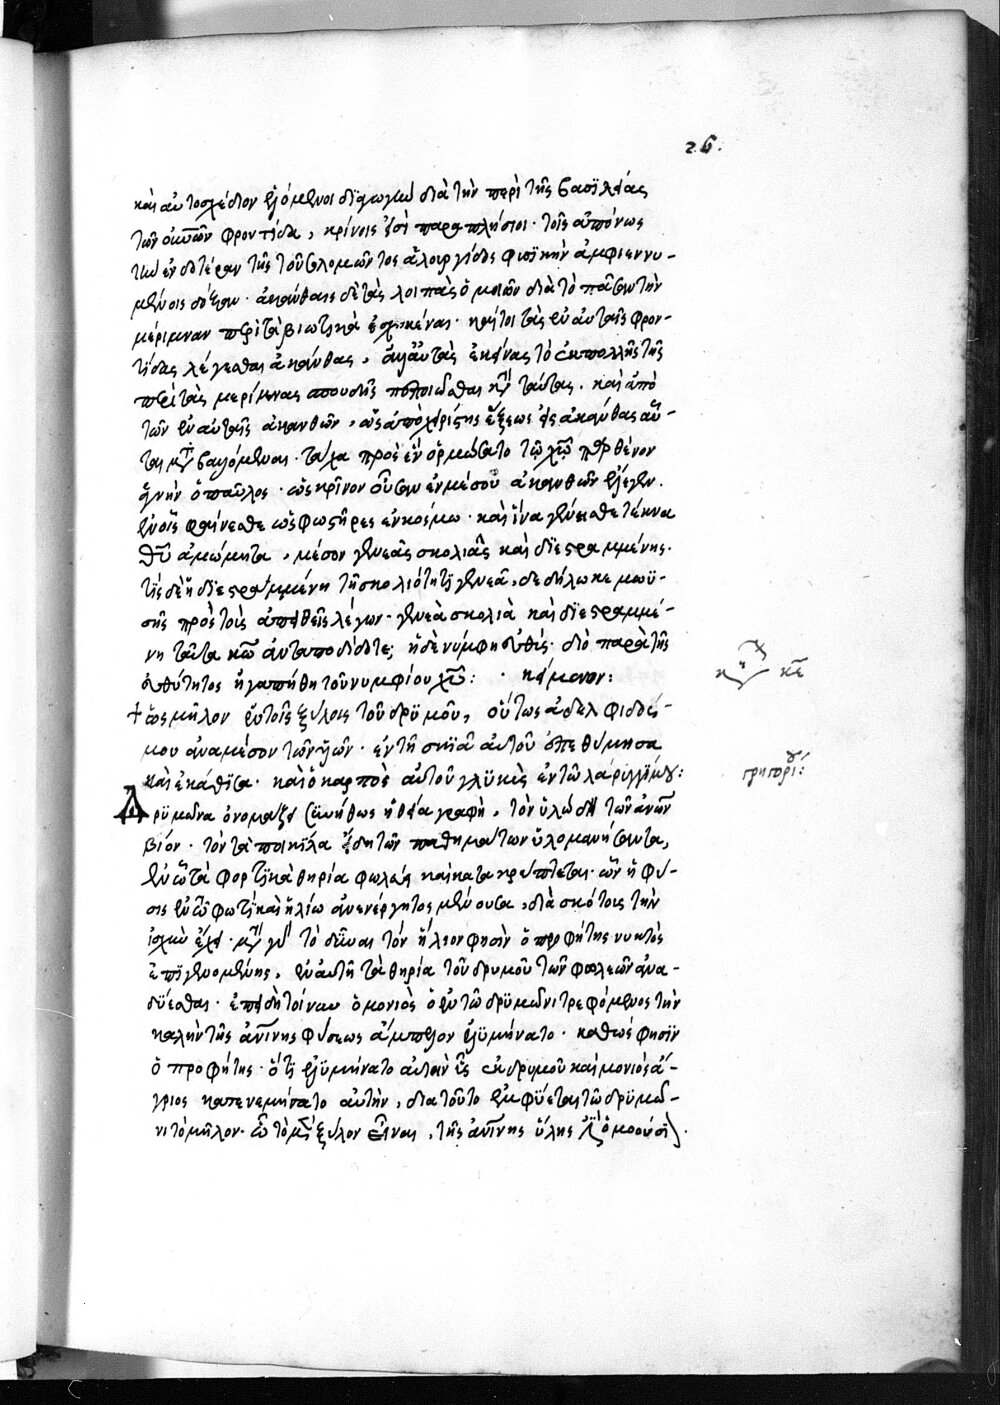 26.
καὶ αὐτοσχέδιον διὰ τὴν περὶ τῆς βασιλείας
τῶν οὐρανῶν φροντίδα, κρίνοις εἰσὶ παραπλήσιοι· τοῖς ἀπόνως
τὴν ἐνδοτέραν τῆς τοῦ σολομῶντος ἁλουργίδος φυσικὴν ἀμφιεννυ-
μένοις δόξαν· ἀκάνθαις δὲ τὰς λοιπὰς ὁμοιῶν διὰ τὸ πᾶσαν τὴν
μέριμναν περὶ τὰ βιωτικὰ ἐσχηκέναι· καίτοι τὰς ἐν αὐταῖς φρον-
τίδας λέγεσθαι ἀκάνθας, ἀλλ' αὐτὰς ἐκείνας τὸ ἐκ πολλῆς τῆς
περὶ τὰς μερίμνας σπουδῆς πεποιῶσθαι κατὰ ταύτας. καὶ ἀπὸ
τῶν ἐν αὐταῖς ἀκανθῶν, εἰς ἀκάνθας αὖ-
ται μεταβαλόμεναι· τάχα πρὸς ἣν ἡρμόσατο τῷ χῶ παρθένον
ἁγνὴν ὁ παῦλος· ὡς κρίνον οὖσαν ἐν μέσου ἀκανθῶν ἔλεγεν.
ἐν οἷς φαίνεσθε ὡς φωστῆρες ἐν κοσμω· καὶ ἵνα γένησθε τέκνα
θῦ ἀμώμητα, μέσον γενεᾶς σκολιᾶς καὶ διεστραμμένης.
τίς δὲ ἡ διεστραμμένη τῇ σκολιότητι γενεά, δεδήλωκε μωϋ-
σῆς πρὸς τοὺς ἀπειθεῖς λέγων· γενεὰ σκολιὰ καὶ διεστραμμέ-
νη ταῦτα κω ἀνταποδίδοτε; ἡ δὲ νύμφη εὐθύς· διὸ παρὰ τῆς
εὐθύτητος ἠγαπήθη τοῦ νυμφίου χῦ: κείμενον:
+ ὡς μῆλον ἐν τοῖς ξύλοις τοῦ δρυμοῦ, οὕτως ἀδελφιδός-
μου ἀναμέσον τῶν ϋῶν· ἐν τῇ σκιᾶ αὐτοῦ ἐπεθύμησα
καὶ ἐκάθισα· καὶ ὁ καρπὸς αὐτοῦ γλυκὺς ἐν τῶ λάρυγγί μου:
γρηγορίου:
Δρυμῶνα ὀνομάζει συνήθως ἡ θεία γραφὴ, τὸν ὑλώδη τῶν ἀνῶν
βίον· τὸν τὰ ποικίλα εἴδη τῶν παθημάτων ὑλομανήσαντα,
ἐν ὧ τὰ φθαρτικὰ θηρία φωλεύει καὶ κατακρύπτεται· ὧν ἡ φύ-
σις ἐν φωτὶ καὶ ἡλίω ἀνενέργητος μένουσα, διὰ σκότους τὴν
ἰσχὺν ἔχει· μετὰ γὰρ τὸ δῦναι τὸν ἥλιον φησὶν ὁ προφήτης νυκτὸς
ἐπιγενομένης, ἐν αὐτῇ τὰ θηρία τοῦ δρυμοῦ τῶν φωλεῶν ἀνα-
δύεσθαι· ἐπειδὴ τοίνυν ὁ μονιὸς ὁ ἐν τῶ δρυμῶνι τρεφόμενος τὴν
καλὴν τῆς ἀνίνης φύσεως ἄμπελον ἐλυμήνατο· καθώς φησὶν
ὁ προφήτης· ὅτι ἐλυμήνατο αὐτὴν ὗς ἐκ δρυμοῦ καὶ μονιὸς ἄ-
γριος κατενεμήσατο αὐτὴν, διατοῦτο ἐμφύεται τῶ δρυμῶ-
νι τὸ μῆλον· ὃ τὸ μὲν ξύλον εἶναι, τῆς ἀνίνης ὕλης ὁμοούσιον.